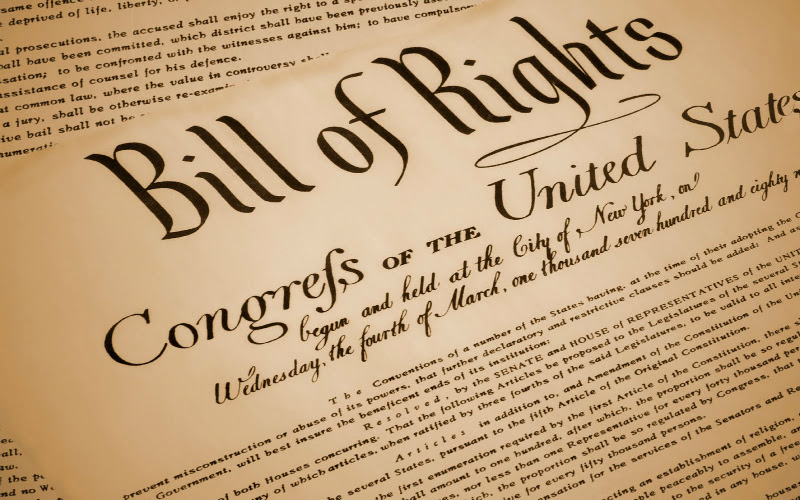 same offence
e deprived of life, liberty, or
al prosecutions, the accused shall enjoy the right to a
hall have been committed, which district shall have been previously
sation; to be confronted with the witnesses against him; to have compulsory
ssistance of counsel for his defence.
at common law, where the value in controversy shall
a jury, shall be otherwise re-exami
ive bail shall not be
numerati
Bill of Rights
Congreſs OF THE United States
begun and held at the City of New York, on
Wednesday, the fourth of March, one thousand seven hundred and eighty
The Conventions of a number of the States having, at the time of their adopting the
prevent misconstruction or abuse of its powers, that further declaratory and restrictive clauses should be added: And
Government, will best insure the beneficent ends of its institution:
Resolved, by the SENATE and HOUSE of REPRESENTATIVES of the
of both Houses concurring, That the following Articles be proposed to the Legislatures of the several
ny of which articles, when ratified by three fourths of the said Legislatures, to be valid to all
Articles in addition to, and Amendment of the Constitution of the
he several States, pursuant to the fifth Article of the Original Constitution.
the first enumeration required by the first Article of the Constitution, there
all amount to one hundred, after which, the proportion shall be so
nor less than one Representative for every forty thousand
the proportion shall be so regulated by Congress, that
for every fifty thousand persons.
for the services of the Senators and
an establishment of religion,
peaceably to assemble,
security of a free
any house,